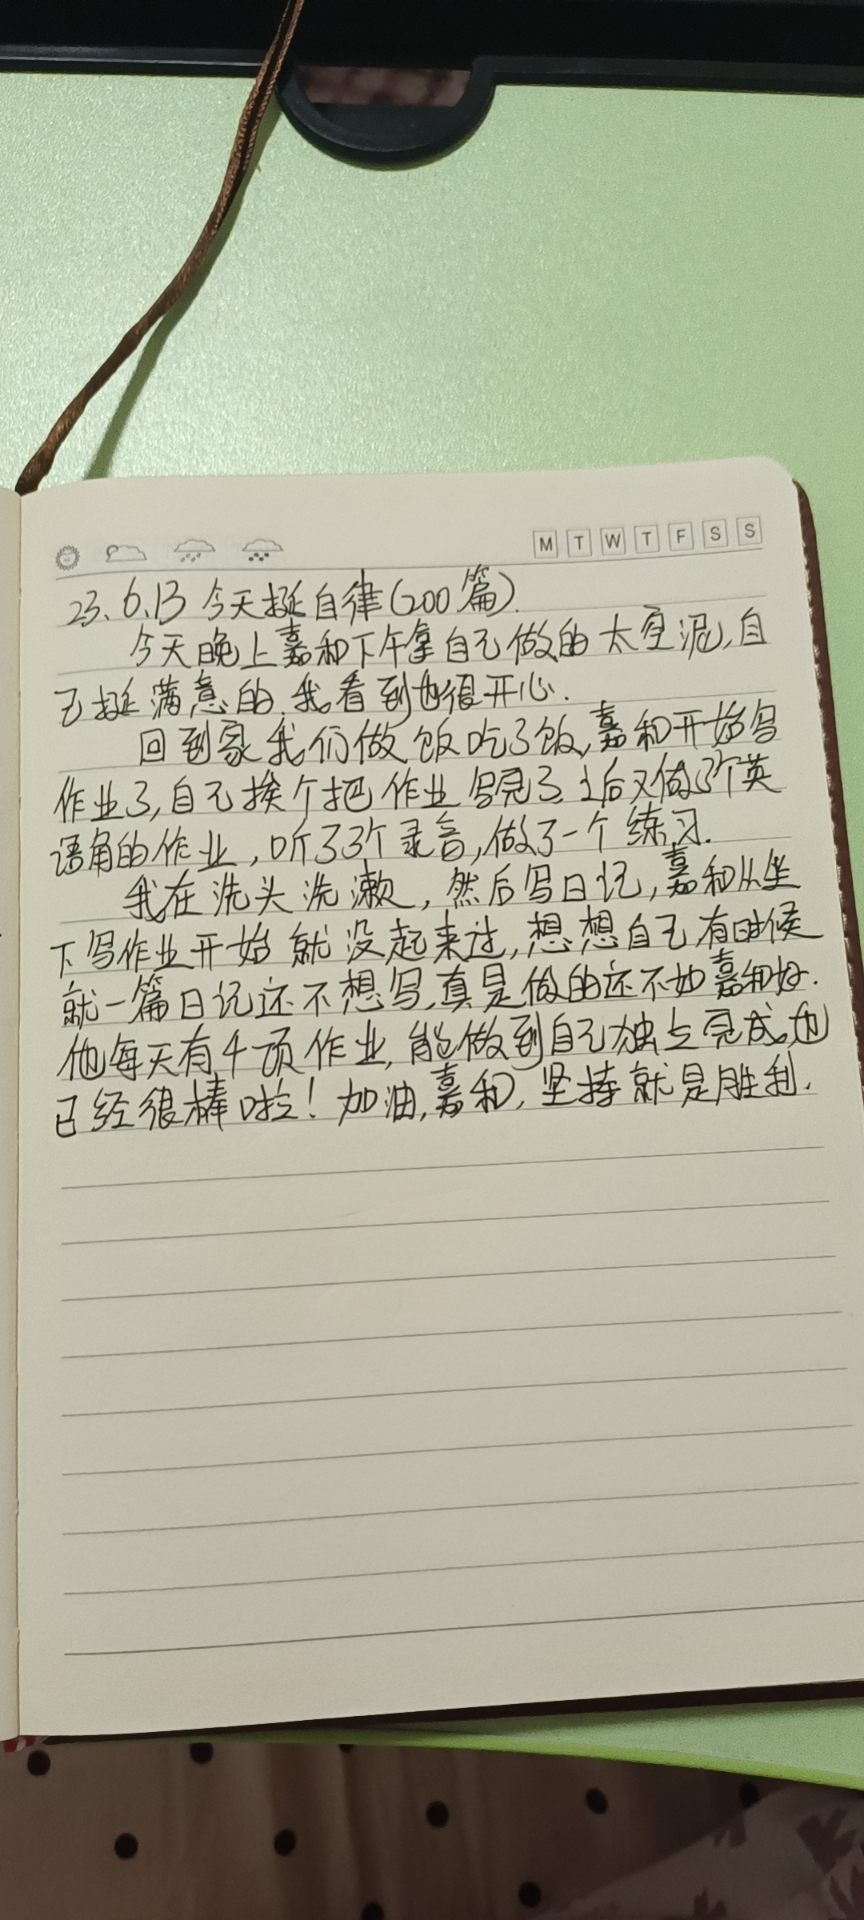 M T W T F S S
23.6.13 今天挺自律(200篇).
今天晚上嘉和下午拿自己做的太空泥,自
己挺满意的.我看到也很开心.
回到家我们做饭吃了饭,嘉和开始写
作业了,自己挨个把作业写完了.后又做了个英
语角的作业,听了3个录音,做了一个练习.
我在洗头洗漱,然后写日记,嘉和从坐
下写作业开始就没起来过,想想自己有时候
就一篇日记还不想写,真是做的还不如嘉和好.
他每天有4项作业,能做到自己独立完成,也
已经很棒啦!加油,嘉和,坚持就是胜利.